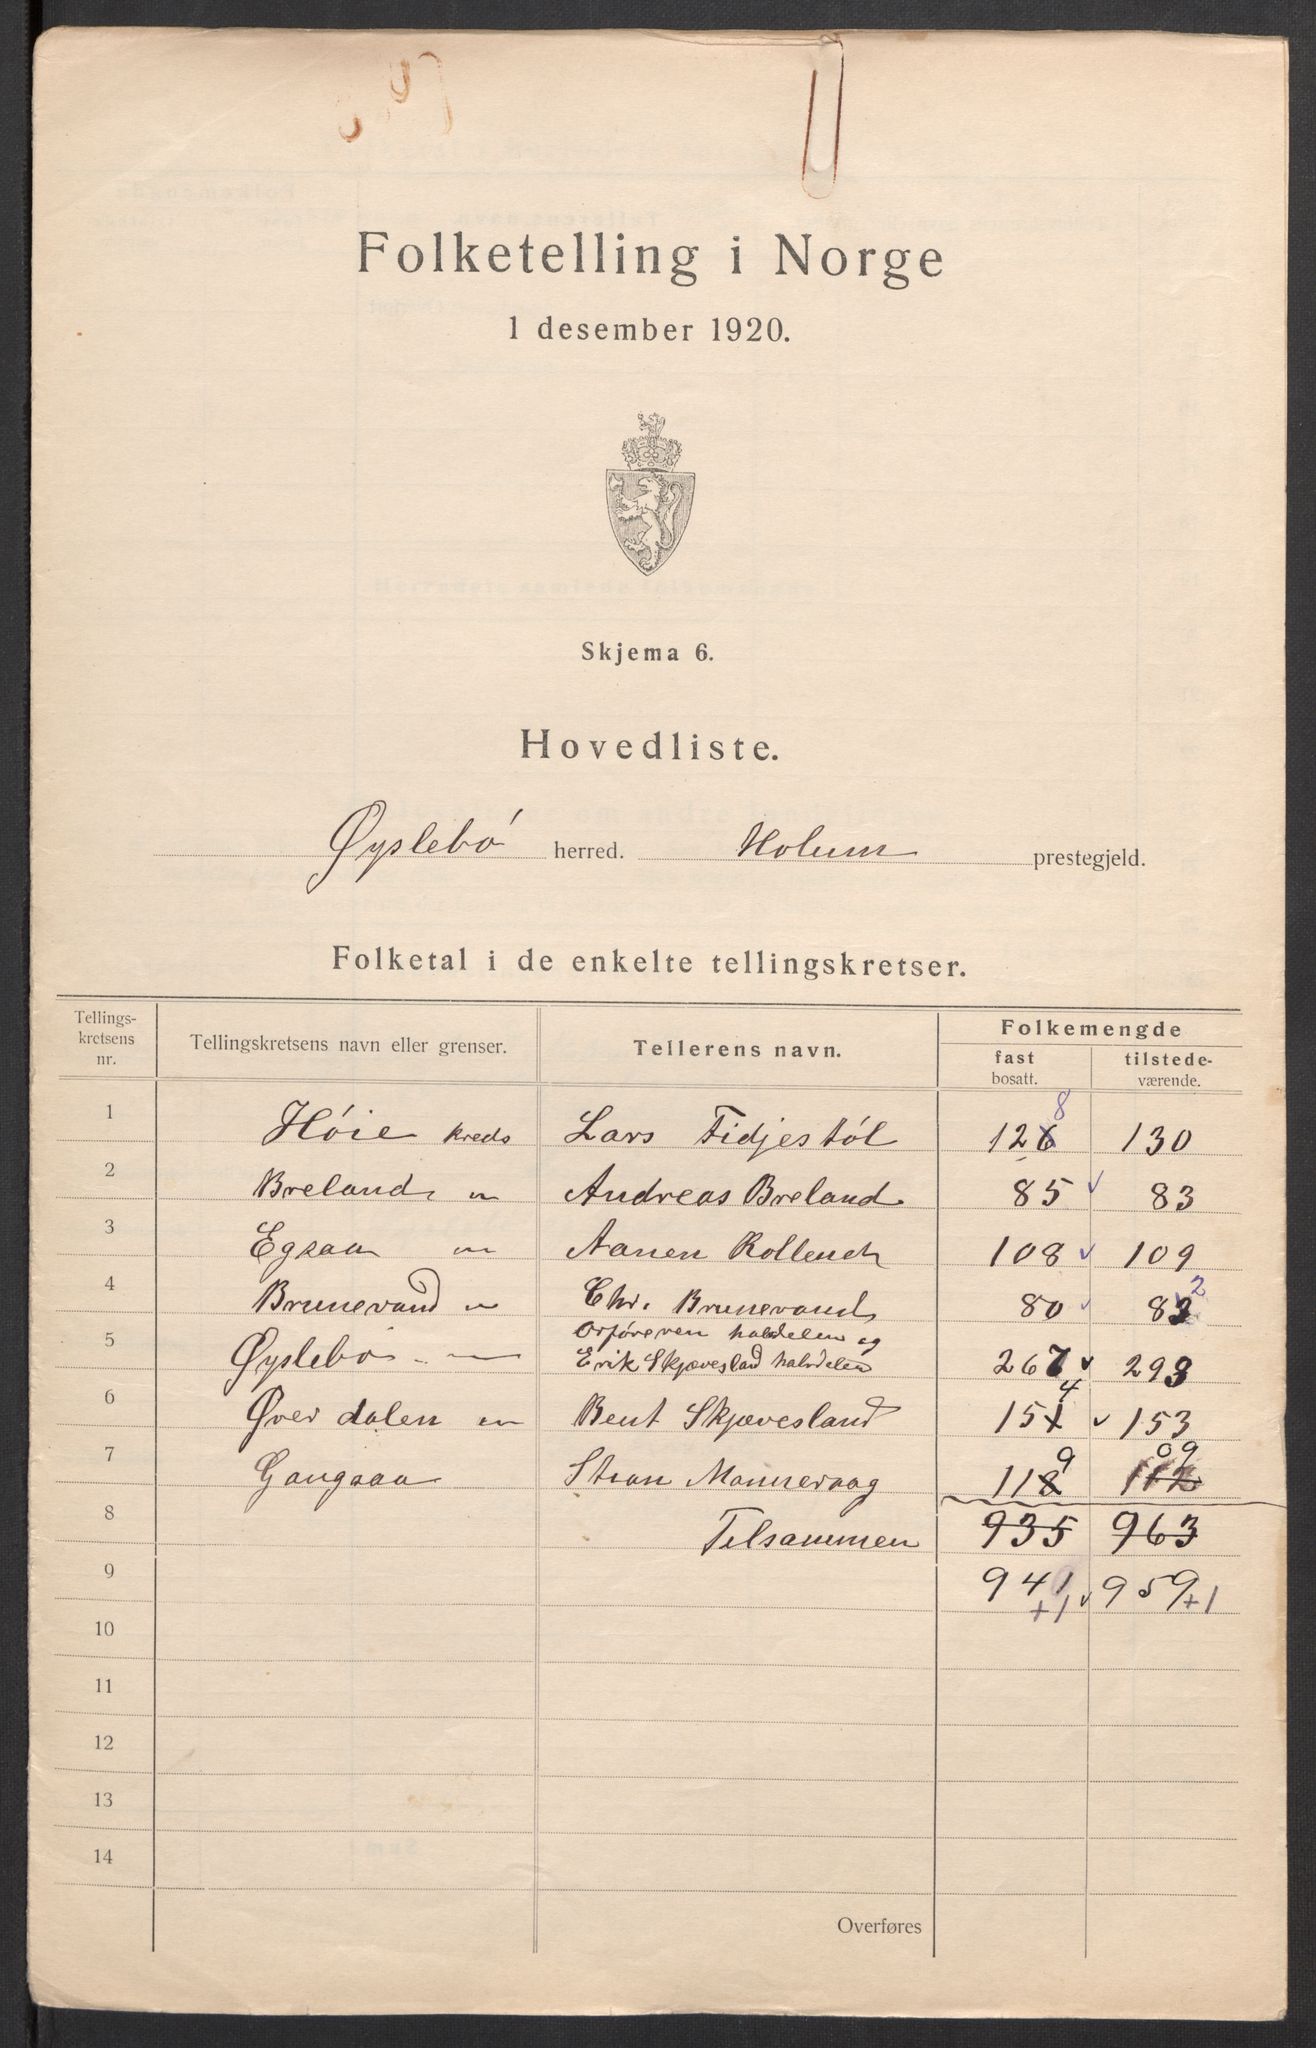 Folketelling i Norge
1 desember 1920.
Skjema 6.
Hovedliste.
Øyslebø herred. Holum prestegjeld.
Folketal i de enkelte tellingskretser.
Tellings-
kretsens
nr.
Tellingskretsens navn eller grenser.
Tellerens navn.
Folkemengde
fast
bosatt.
tilstede-
værende.
8
1 Høie kreds Lars Fidjestøl 126 130
2 Breland " Andreas Breland 85 83
3 Egsaa " Aanen 108 109
2
4 Brunevand " Chr. Brunevand 80 83
halvdelen og
5 Øyslebø " Erik Skjævesland halvdelen 267 293
4
6 Øvre dalen " Bent Skjævesland 151 153
9 09
7 Gangsaa Manneraag 118 112
8 Tilsammen 935 963
9 941 959
+1 +1
10
11
12
13
14
Overføres